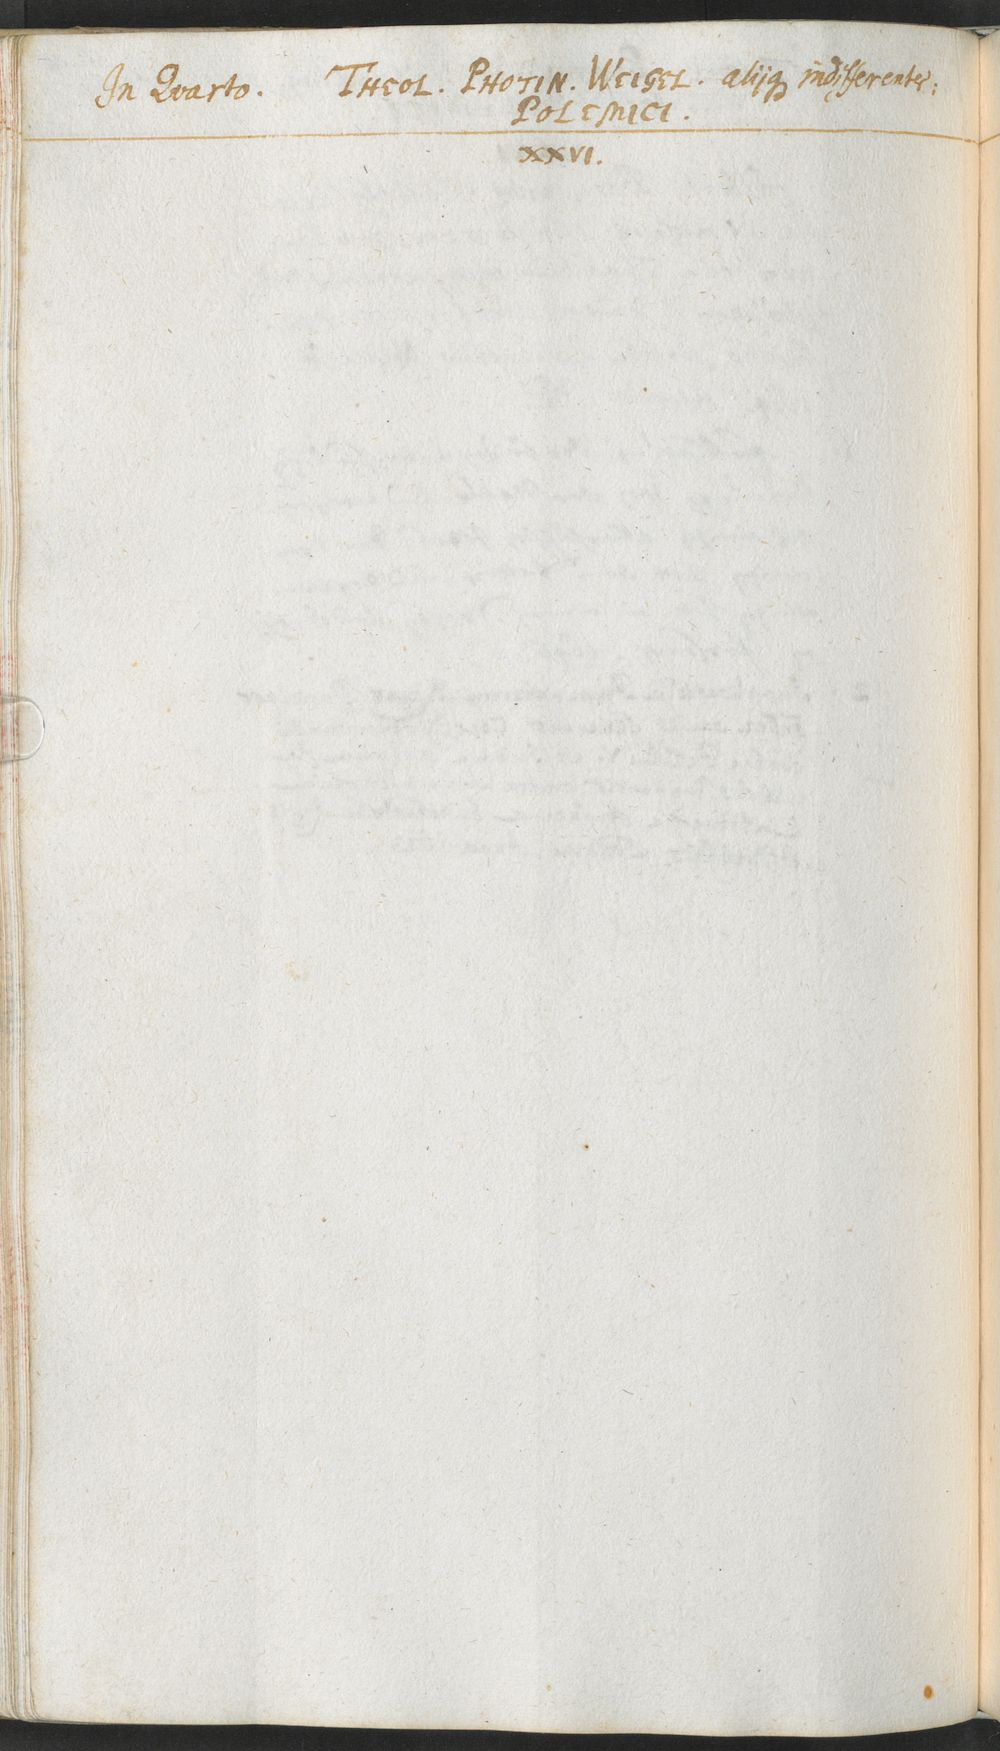 In Qvarto. THEOL. PHOTIN. WEIGEL. alijq; indifferenter.
POLEMICI.
XXVI.